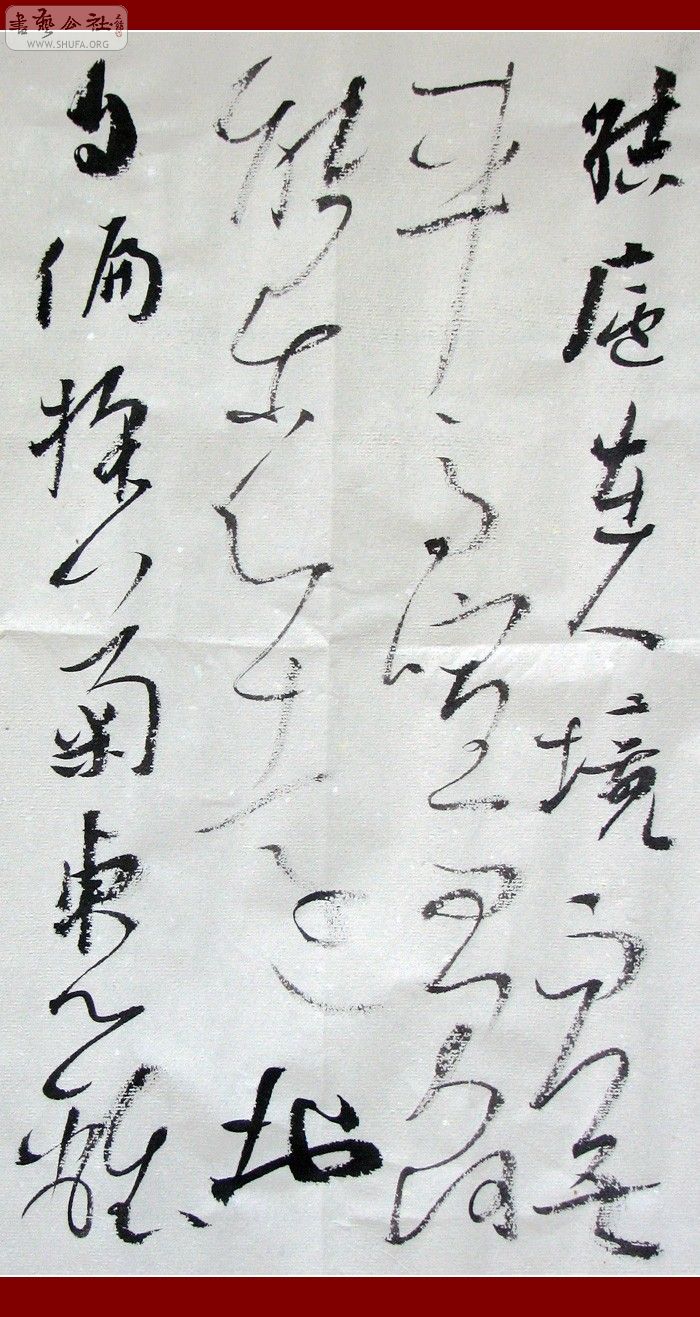 書藝公社
WWW.SHUFA.ORG
結廬在人境而無
車馬喧問君何
能爾心遠地
自偏採菊東籬